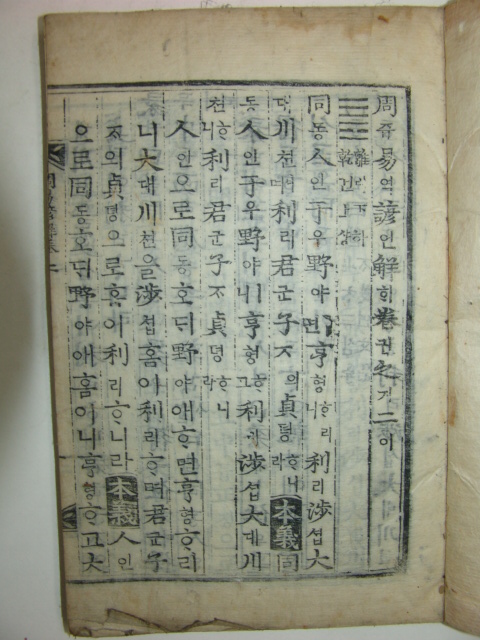 周쥬易역諺언解ᄒᆡ卷권之지二이
離리下하
乾건上샹
同동人인于우野야면亨형ᄒᆞ리니利리涉셥大
대川쳔利리君군子ᄌᆞ의貞뎡ᄒᆞ니라本義同
동人인于우野야니亨형ᄒᆞ고利리涉셥大대川
쳔ᄒᆞ니利리君군子ᄌᆞ貞뎡ᄒᆞ니라
人인으로同동호ᄃᆡ野야애ᄒᆞ면亨형ᄒᆞ리
니大대川쳔을涉셥홈이利리ᄒᆞ며君군子
ᄌᆞ의貞뎡으로홈이利리ᄒᆞ니라本義人인
으로同동호ᄃᆡ野야애홈이니亨형ᄒᆞ고大